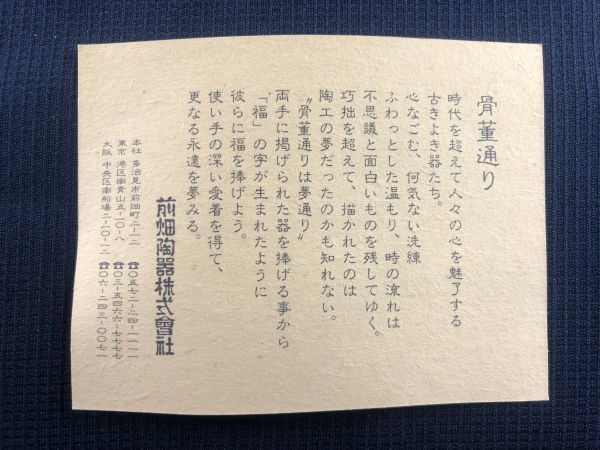 骨董通り
時代を超えて人々の心を魅了する
古きよき器たち。
心なごむ、何気ない洗練
ふわっとした温もり、時の流れは
不思議と面白いものを残してゆく。
巧拙を超えて、描かれたのは
陶工の夢だったのかも知れない。
〝骨董通りは夢通り〟
両手に掲げられた器を捧げる事から
「福」の字が生まれたように
彼らに福を捧げよう。
使い手の深い愛着を得て、
更なる永遠を夢みる。
前畑陶器株式會社
本社 多治見市前畑町二-一二 ☎〇五七二-二四-一一一一
東京 港区南青山五-一〇-八 ☎〇三-五四六六-七七七七
大阪 中央区南船場二-一〇-一二 ☎〇六-二四三-〇〇七一